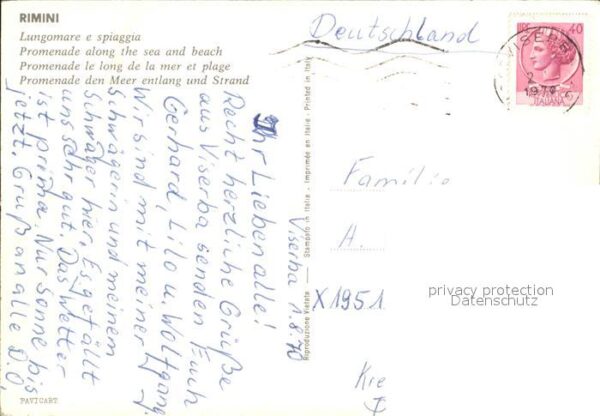 RIMINI
Lungomare e spiaggia
Promenade along the sea and beach
Promenade le long de la mer et plage
Promenade den Meer entlang und Strand
Deutschland
40
VISERBA
1970
ITALIANA
Viserba 1.8.70
Ihr Lieben alle!
Recht herzliche Grüße
aus Viserba senden Euch
Gerhard, Lilo u. Wolfgang
Wir sind mit meiner
Schwägerin und meinem
Schwager hier. Es gefällt
uns sehr gut. Das Wetter
ist prima. Nur Sonne bis
jetzt. Gruß an alle D.O.
Riproduzione Vietata — Stampato in Italia - Imprimée en Italie - Printed in Italy
Familie
A.
X1951
privacy protection
Datenschutz
Kre
I
PAVICART